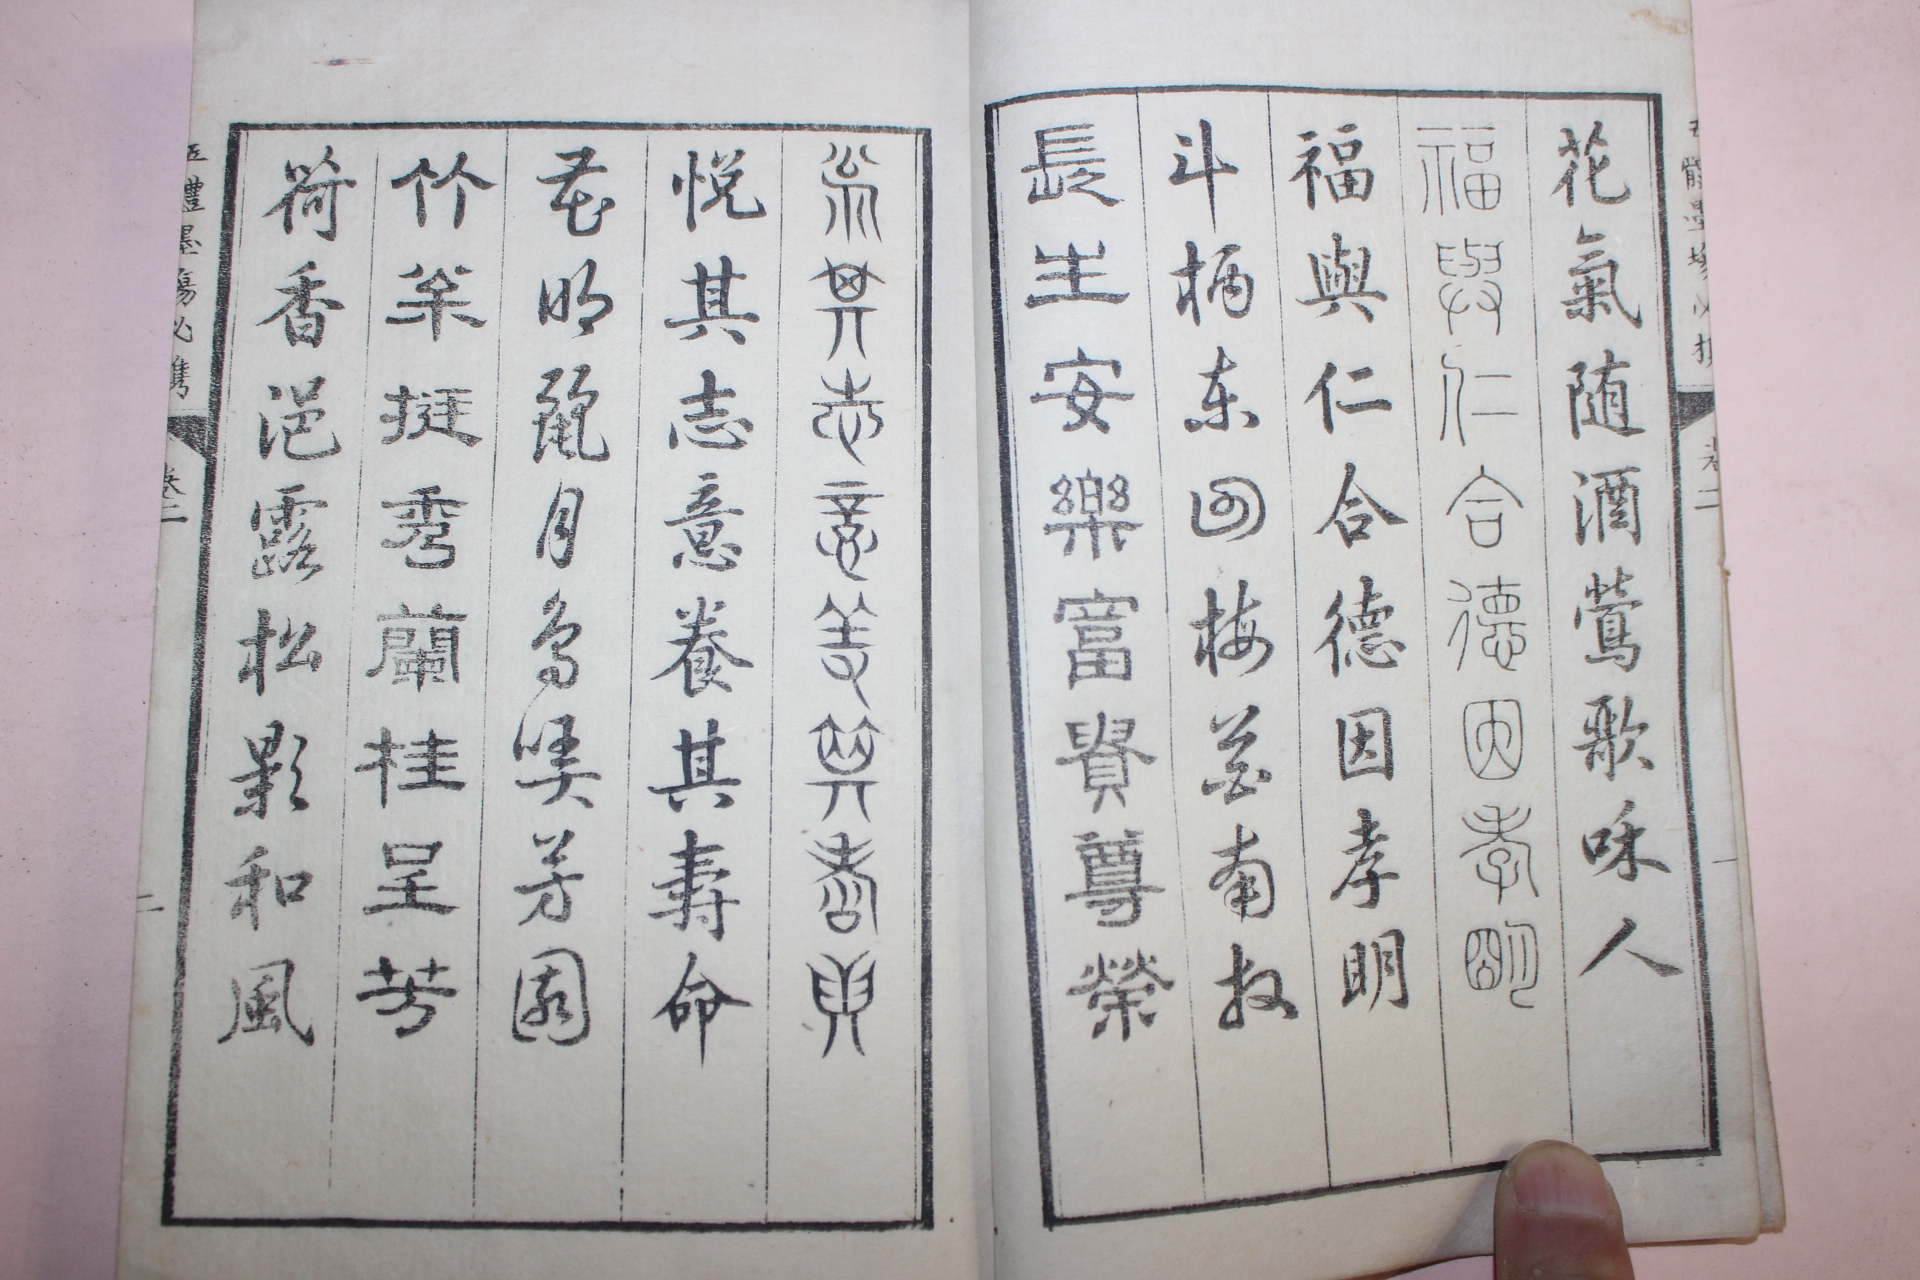 五體墨場必携 卷二 一
花氣随酒鶯歌咊人
福與仁合德因孝明
福與仁合德因孝明
斗柄東回梅花南枝
長生安樂富貴尊榮
其志意養其壽命
悦其志意養其壽命
花明麗月鳥哢芳園
竹挺秀蘭桂呈芳
荷香浥露松影和風
五體墨場必携 卷二 二